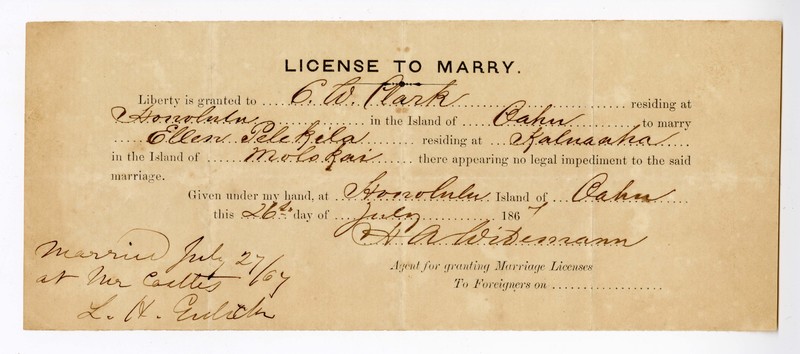 LICENSE TO MARRY.
Liberty is granted to C. W. Clark residing at
Honolulu in the Island of Oahu to marry
Ellen Pelekila residing at Kaluaaha
in the Island of Molokai there appearing no legal impediment to the said
marriage.
Given under my hand, at Honolulu Island of Oahu
this 26th day of July 1867
H A Widemann
Agent for granting Marriage Licenses
To Foreigners on
Married July 27/67
at Mr
L. H. Gulick